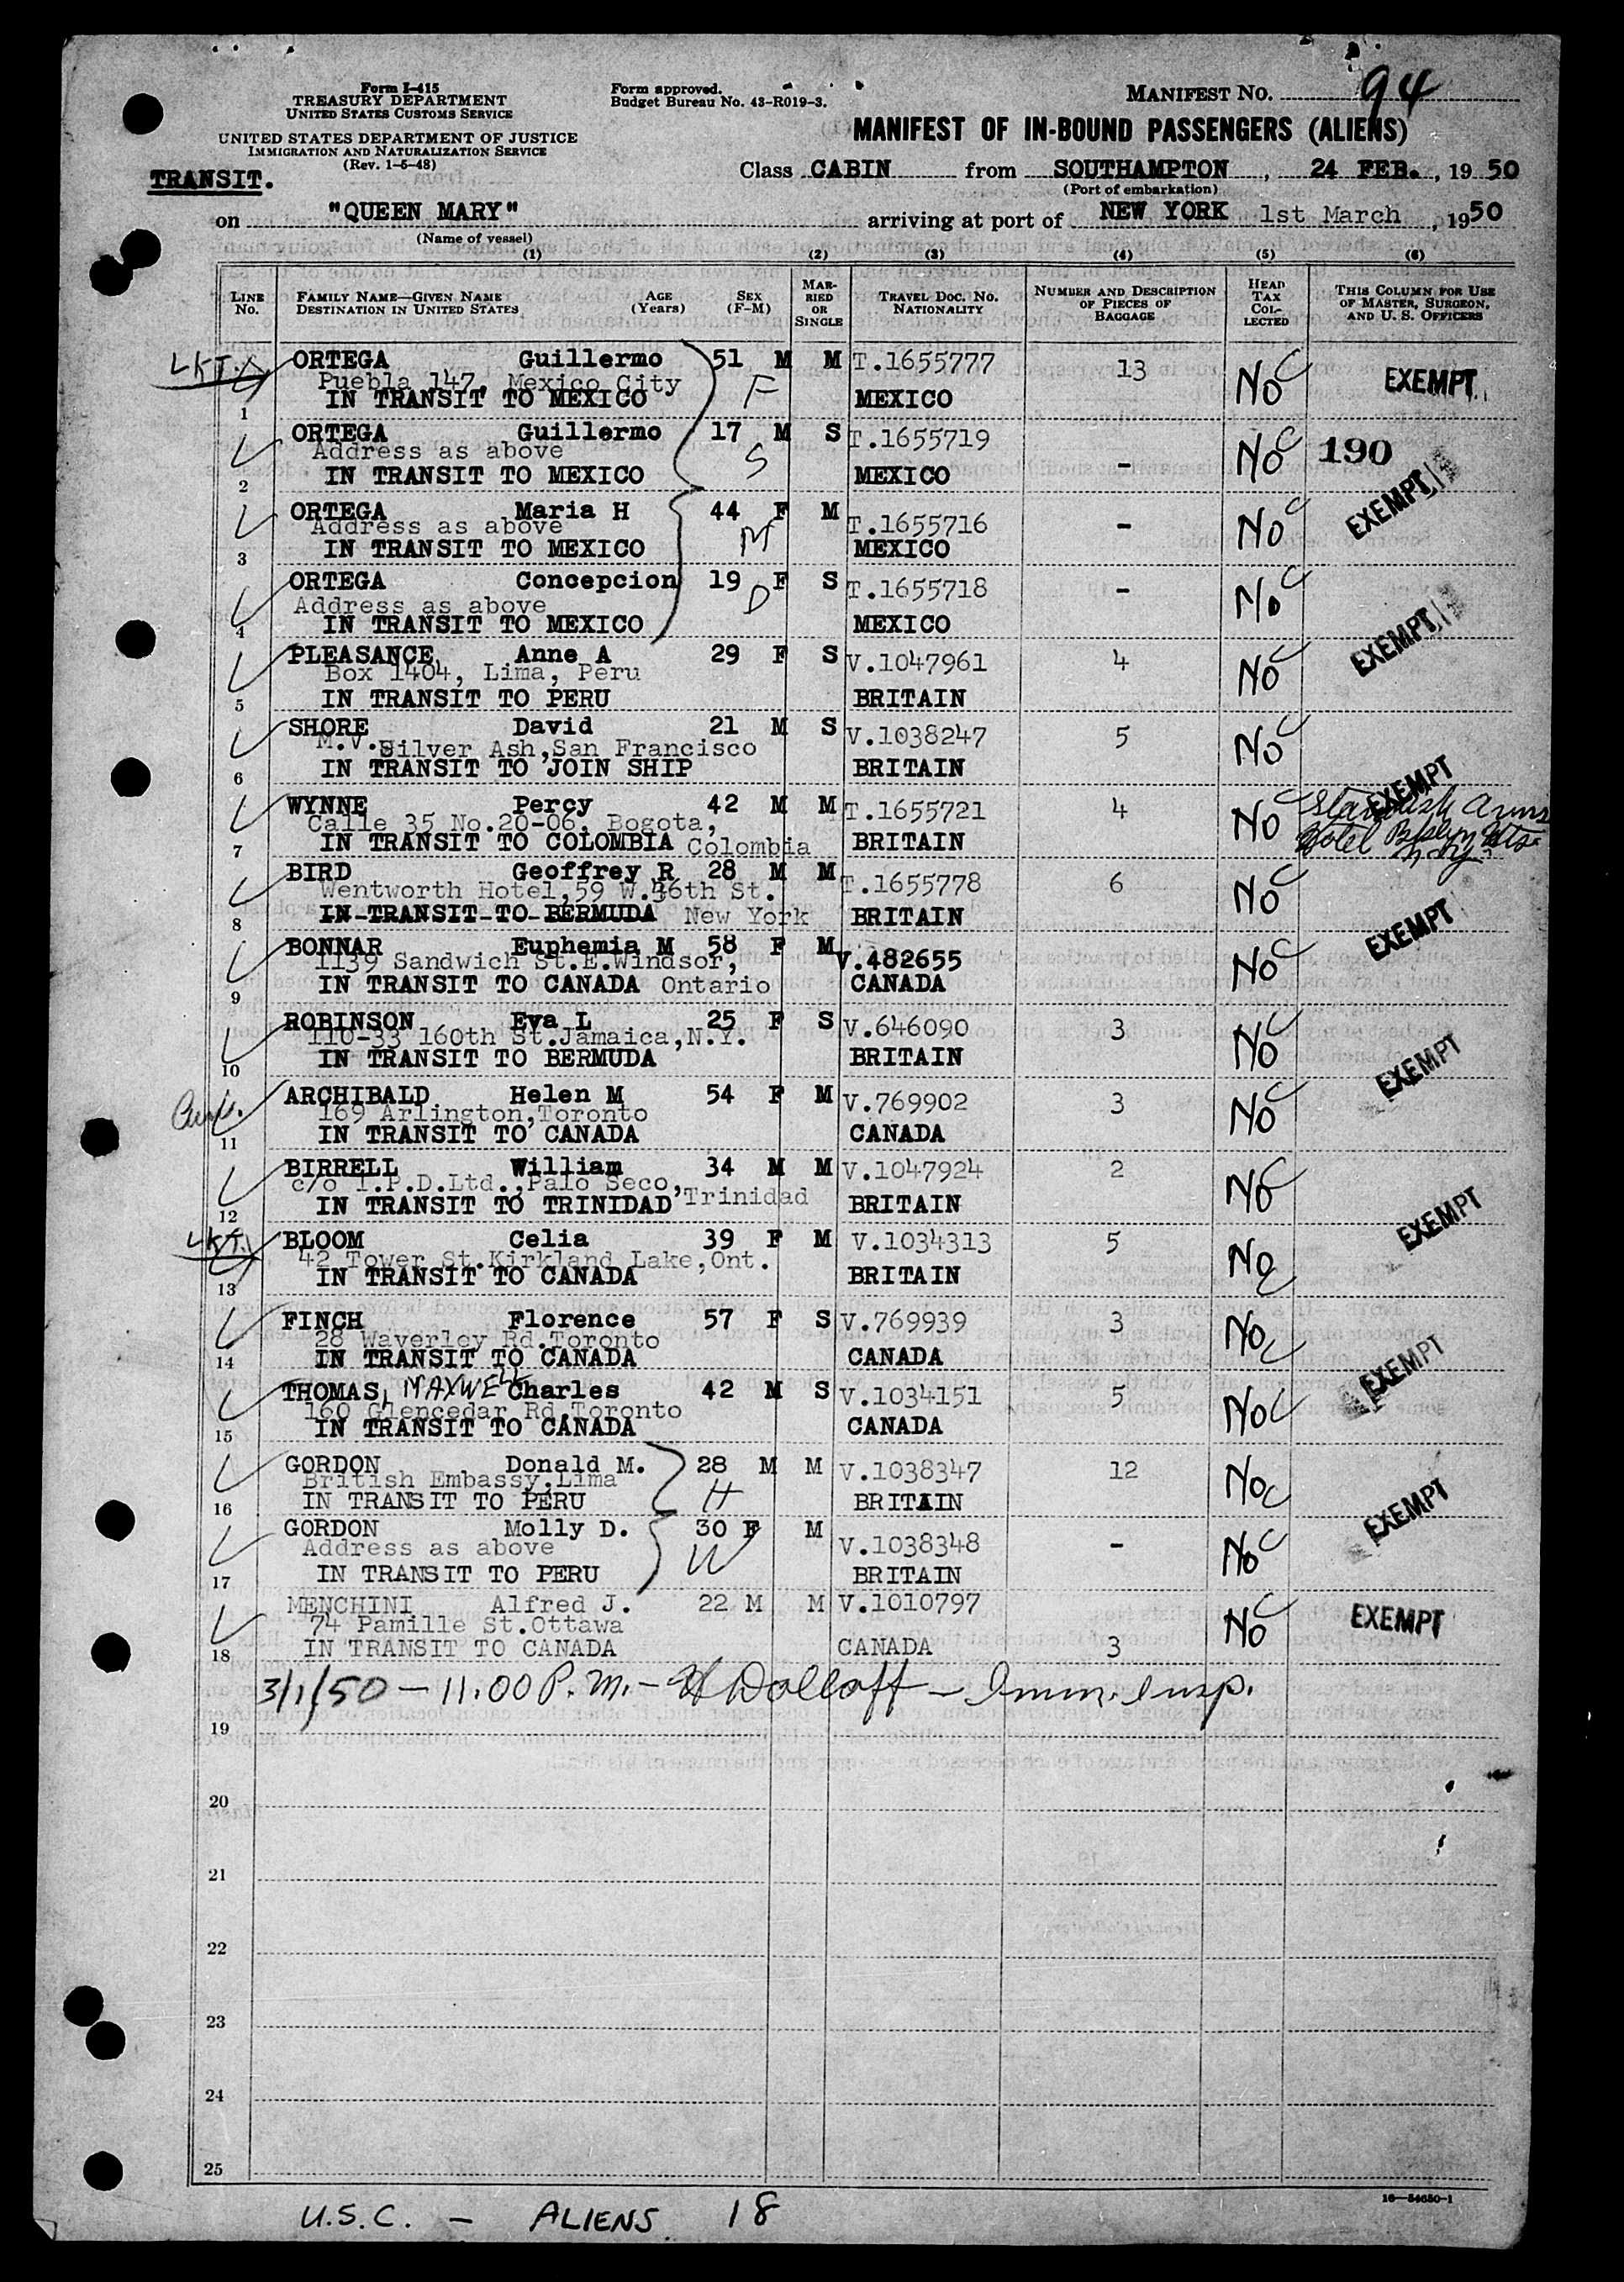 Form I-415
TREASURY DEPARTMENT
UNITED STATES CUSTOMS SERVICE
UNITED STATES DEPARTMENT OF JUSTICE
IMMIGRATION AND NATURALIZATION SERVICE
(Rev. 1-5-48)
TRANSIT.
Form approved.
Budget Bureau No. 43-R019-3.
MANIFEST NO. 94
MANIFEST OF IN-BOUND PASSENGERS (ALIENS)
Class CABIN from SOUTHAMPTON, 24 FEB., 1950
(Port of embarkation)
on "QUEEN MARY" arriving at port of NEW YORK 1st March, 1950
(Name of vessel)
(1) (2) (3) (4) (5) (6)
LINE NO. FAMILY NAME—GIVEN NAME DESTINATION IN UNITED STATES AGE (Years) SEX (F-M) MARRIED OR SINGLE TRAVEL DOC. NO. NATIONALITY NUMBER AND DESCRIPTION OF PIECES OF BAGGAGE HEAD TAX COLLECTED THIS COLUMN FOR USE OF MASTER, SURGEON, AND U. S. OFFICERS
LKT. ORTEGA Guillermo 51 M M T.1655777 13 No C EXEMPT
Puebla 147, Mexico City F
1 IN TRANSIT TO MEXICO MEXICO
ORTEGA Guillermo 17 M S T.1655719 - No C 190
Address as above S
2 IN TRANSIT TO MEXICO MEXICO EXEMPT
ORTEGA Maria H 44 F M T.1655716 - No C
Address as above M
3 IN TRANSIT TO MEXICO MEXICO
ORTEGA Concepcion 19 F S T.1655718 - No C
Address as above D
4 IN TRANSIT TO MEXICO MEXICO EXEMPT
PLEASANCE, Anne A 29 F S V.1047961 4 No C
Box 1404, Lima, Peru
5 IN TRANSIT TO PERU BRITAIN
SHORE David 21 M S V.1038247 5 No C
M.V. Silver Ash, San Francisco
6 IN TRANSIT TO JOIN SHIP BRITAIN EXEMPT
WYNNE Percy 42 M M T.1655721 4 No C Standish Arms
Calle 35 No.20-06, Bogota, Hotel Bklyn Hts.
7 IN TRANSIT TO COLOMBIA Colombia BRITAIN N.Y.
BIRD Geoffrey R 28 M M T.1655778 6 No C
Wentworth Hotel, 59 W.46th St.
8 IN-TRANSIT-TO-BERMUDA New York BRITAIN EXEMPT
BONNAR Euphemia M 58 F M V.482655 No C
1139 Sandwich St.E.Windsor,
9 IN TRANSIT TO CANADA Ontario CANADA
ROBINSON Eva L 25 F S V.646090 3 No C
110-33 160th St.Jamaica, N.Y.
10 IN TRANSIT TO BERMUDA BRITAIN EXEMPT
ARCHIBALD Helen M 54 F M V.769902 3 No C
169 Arlington, Toronto
11 IN TRANSIT TO CANADA CANADA
BIRRELL William 34 M M V.1047924 2 No C
c/o T.P.D.Ltd., Palo Seco, Trinidad
12 IN TRANSIT TO TRINIDAD BRITAIN EXEMPT
LKT. BLOOM Celia 39 F M V.1034313 5 No C
42 Tower St.Kirkland Lake, Ont.
13 IN TRANSIT TO CANADA BRITAIN
FINCH Florence 57 F S V.769939 3 No C
28 Waverley Rd.Toronto
14 IN TRANSIT TO CANADA CANADA EXEMPT
THOMAS, MAXWELL Charles 42 M S V.1034151 5 No C
160 Glencedar Rd.Toronto
15 IN TRANSIT TO CANADA CANADA
GORDON Donald M. 28 M M V.1038347 12 No C
British Embassy, Lima H
16 IN TRANSIT TO PERU BRITAIN EXEMPT
GORDON Molly D. 30 F M V.1038348 - No C
Address as above W
17 IN TRANSIT TO PERU BRITAIN
MENCHINI Alfred J. 22 M M V.1010797 No C EXEMPT
74 Pamille St.Ottawa
18 IN TRANSIT TO CANADA CANADA 3
3/1/50 - 11.00 P.M. - Dolloff - Imm. Insp.
19
20
21
22
23
24
25
16—54650-1
U.S.C. - ALIENS 18